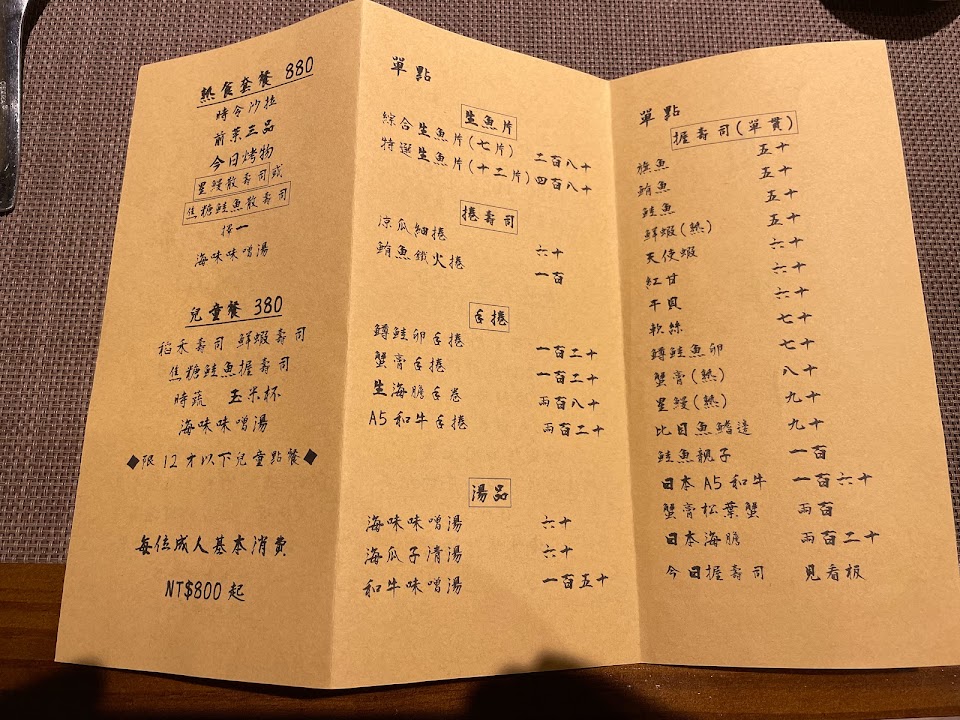 熱食套餐 880
時令沙拉
前菜三品
今日烤物
星鰻散壽司或
焦糖鮭魚散壽司
擇一
海味味噌湯
兒童餐 380
稻禾壽司 鮮蝦壽司
焦糖鮭魚握壽司
時蔬 玉米杯
海味味噌湯
◆限12才以下兒童點餐◆
每位成人基本消費
NT$800起
單點
生魚片
綜合生魚片(七片) 二百八十
特選生魚片(十二片) 四百八十
捲壽司
涼瓜細捲 六十
鮪魚鐵火捲 一百
手捲
鱒鮭卵手捲 一百二十
蟹膏手捲 一百二十
生海膽手卷 兩百八十
A5和牛手捲 兩百二十
湯品
海味味噌湯 六十
海瓜子清湯 六十
和牛味噌湯 一百五十
單點
握壽司(單貫)
旗魚 五十
鮪魚 五十
鮭魚 五十
鮮蝦(熟) 五十
天使蝦 六十
紅甘 六十
干貝 六十
軟絲 七十
鱒鮭魚卵 七十
蟹膏(熟) 八十
星鰻(熟) 九十
比目魚鰭邊 九十
鮭魚親子 一百
日本A5和牛 一百六十
蟹膏松葉蟹 兩百
日本海膽 兩百二十
今日握壽司 見看板